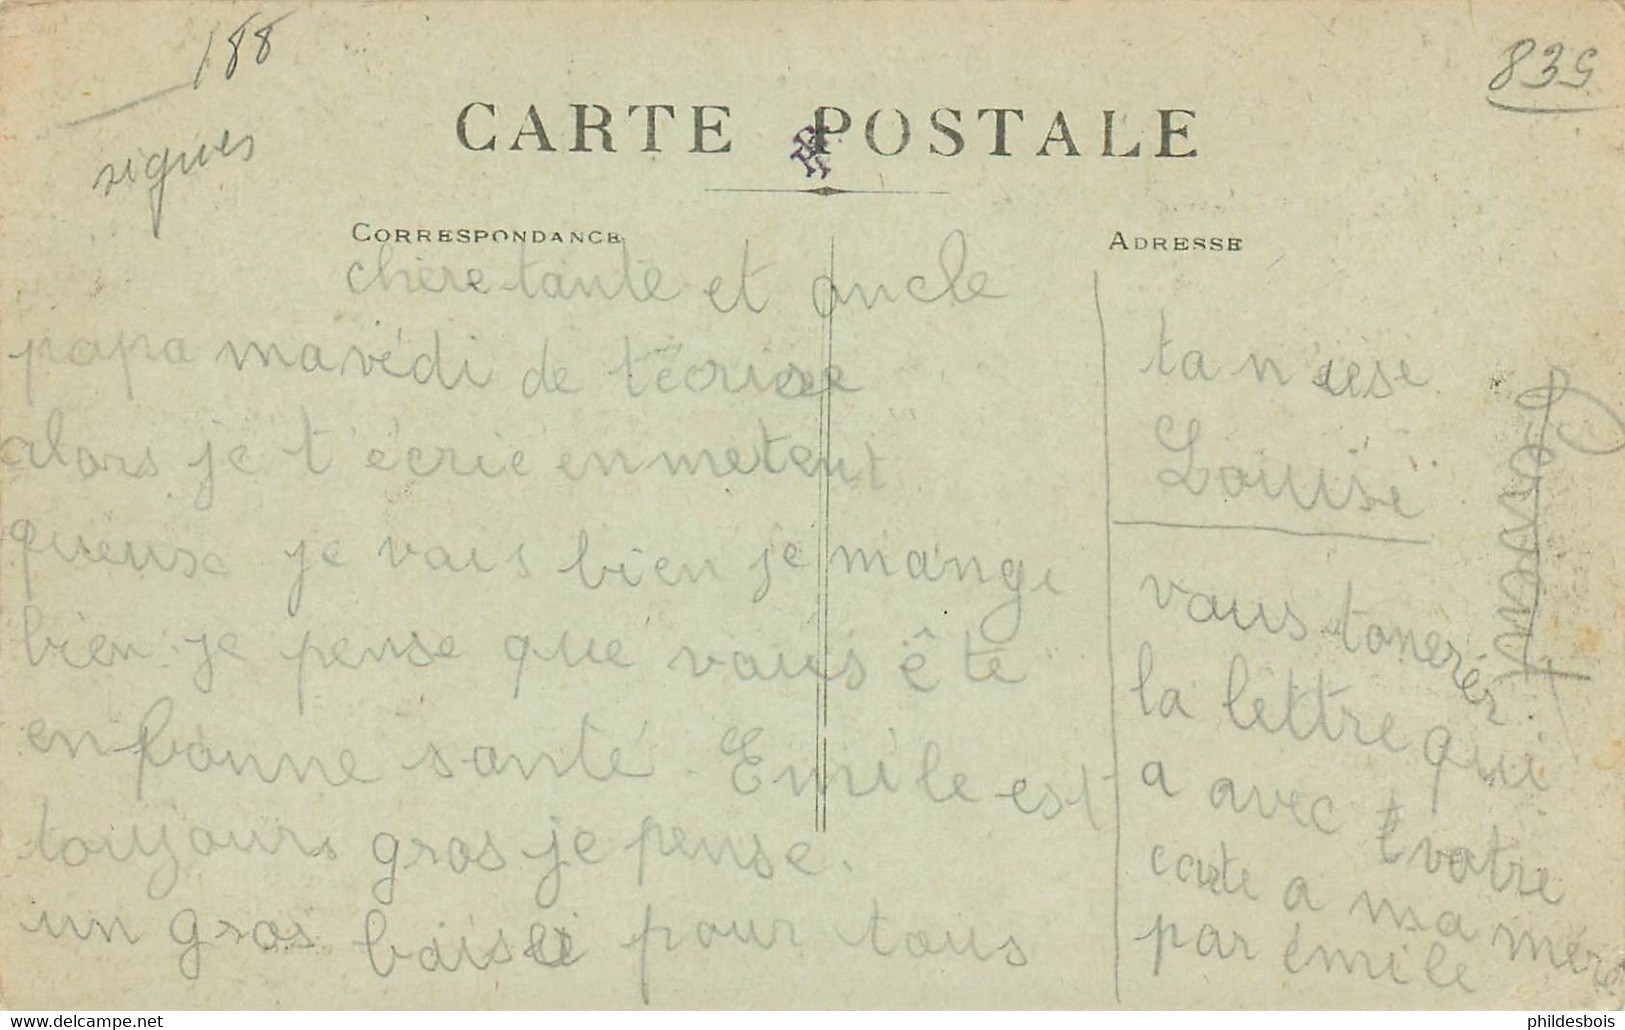 188
signes
835
CARTE POSTALE
CORRESPONDANCE
ADRESSE
chère tante et oncle
papa mavédi de técrire
alors je t'écrie enmeteut
queuse je vais bien je mange
bien je pense que vous ête
en bonne santé. Emile est
toujours gros je pense.
un gros baisé pour tous
ta nièse
Louise
vous tonerér
la lettre qui
a avec votre
carte a ma mère
par émile
phildesbois